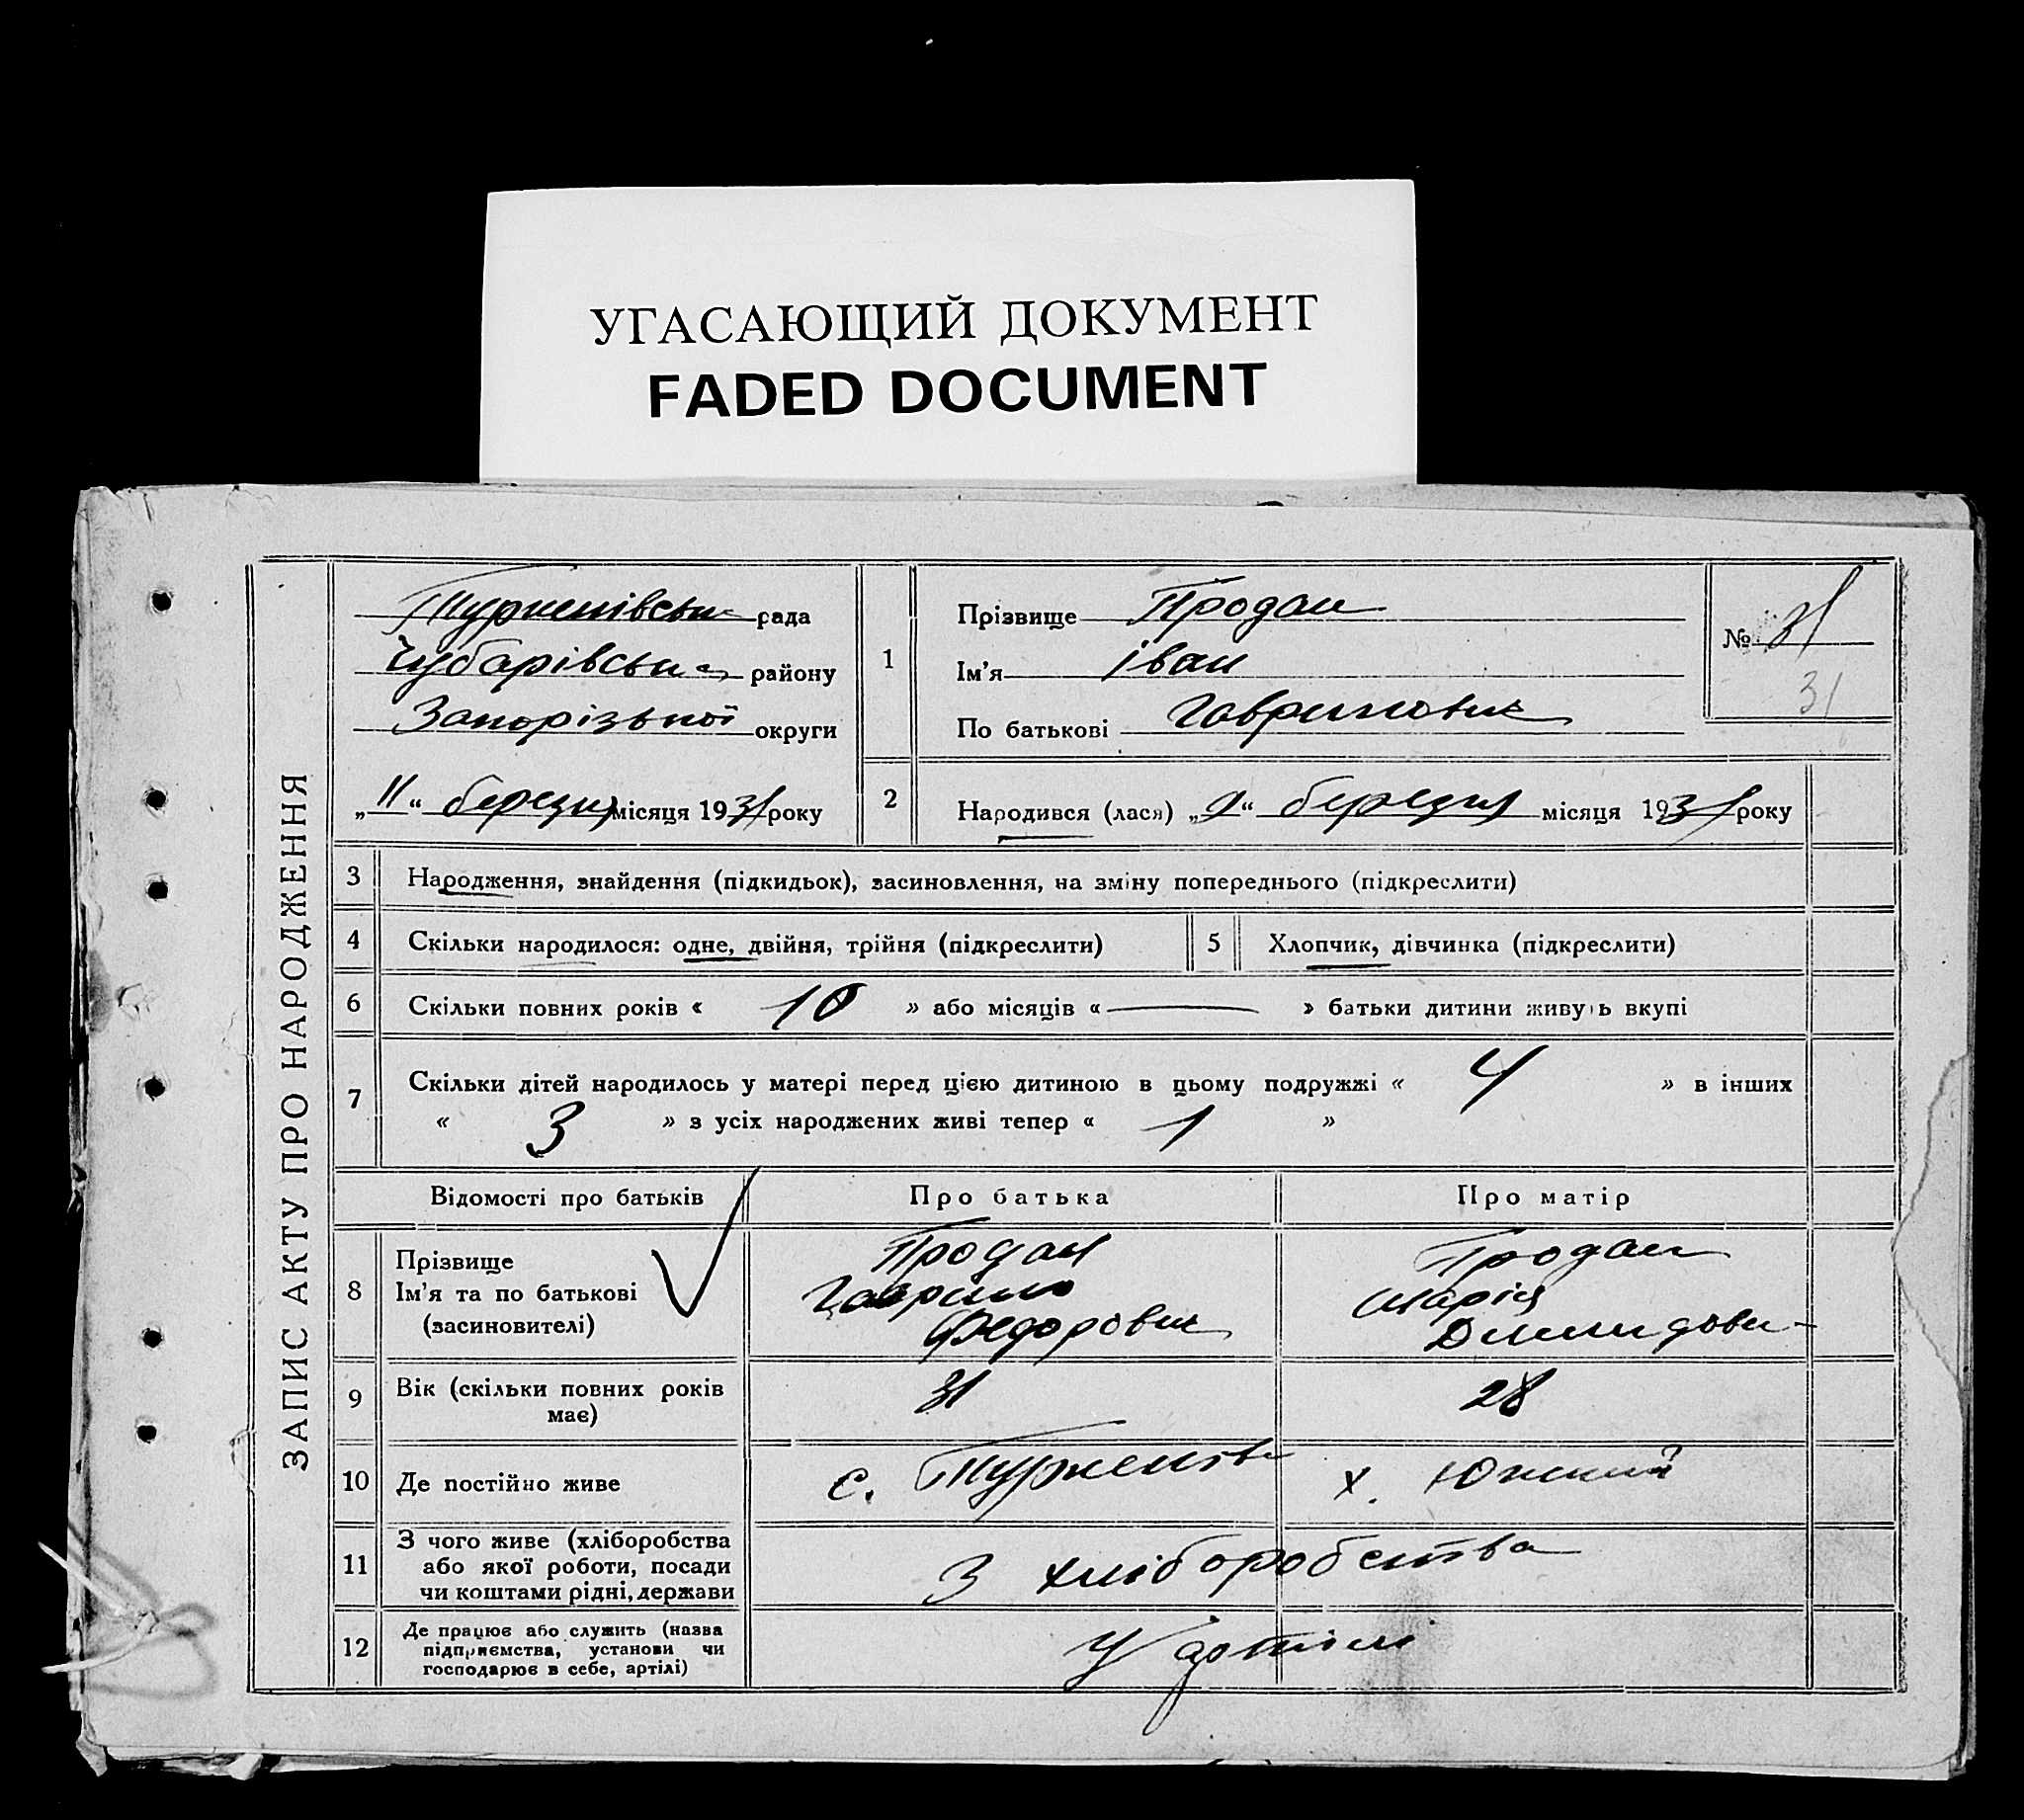 УГАСАЮЩИЙ ДОКУМЕНТ
FADED DOCUMENT
ЗАПИС АКТУ ПРО НАРОДЖЕННЯ
рада
Чубарівська району
Запорізької округи
„11“ березня місяця 1931 року
1
Прізвище Продан
Ім'я Іван
По батькові Гаврилович
№ 31
31
2
Народився (лася) „ “ березня місяця 1931 року
3 Народження, знайдення (підкидьок), засиновлення, на зміну попереднього (підкреслити)
4 Скільки народилося: одне, двійня, трійня (підкреслити)
5 Хлопчик, дівчинка (підкреслити)
6 Скільки повних років « 10 » або місяців « — » батьки дитини живуть вкупі
7 Скільки дітей народилось у матері перед цією дитиною в цьому подружжі « 4 » в інших
« 3 » з усіх народжених живі тепер « 1 »
Відомості про батьків Про батька Про матір
8 Прізвище
Ім'я та по батькові
(засиновителі)
Продан
Гаврило
Федорович
Продан
Марія
9 Вік (скільки повних років
має)
31
28
10 Де постійно живе
с.
х.
11 З чого живе (хліборобства
або якої роботи, посади
чи коштами рідні, держави
З хліборобства
12 Де працює або служить (назва
підприємства, установи чи
господарює в себе, артілі)
У